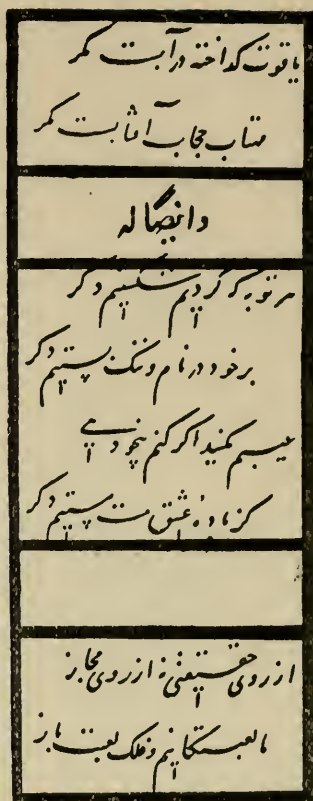 یاقوت کداخته درآبست مکر
مهتاب حجاب آفتابست مکر
وایضاً له
هر توبه که کردیم شکستیم دکر
برخود در نام و ننک بستیم دکر
عیبم مکنید اکر کنم بیخودیی
کز بادهٔ عشق مست مستیم دکر
از روی حقیقتی نه از روی مجاز
ما لعبتکانیم و فلک لعبت باز